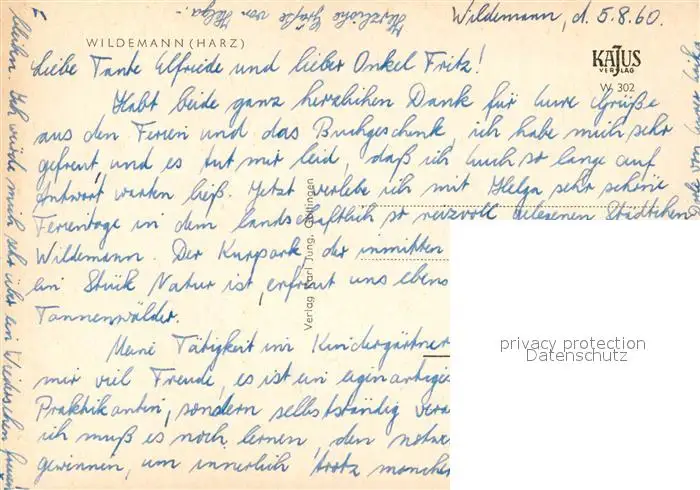 Wildemann, d. 5.8.60.
WILDEMANN (HARZ)
KAJUS
VERLAG
W 302
Liebe Tante Elfriede und lieber Onkel Fritz!
Habt beide ganz herzlichen Dank für Eure Grüße
aus den Ferien und das Buchgeschenk, ich habe mich sehr
gefreut, und es tut mir leid, daß ich Euch so lange auf
Antwort warten ließ. Jetzt verlebe ich mit Helga sehr schöne
Ferientage in dem landschaftlich so reizvoll gelegenen Städtchen
Wildemann. Der Kurpark, der inmitten
ein Stück Natur ist, erfreut uns ebens
Tannenwälder.
Meine Tätigkeit im Kindergärtner
mir viel Freude, es ist ein eigenartiges
Praktikantin, sondern selbstständig vera
ich muß es noch lernen, den notwe
gewinnen, um innerlich trotz manchen
Verlag Karl Jung, Göttingen
privacy protection
Datenschutz
bleiben. Ich würde mich sehr über ein Wiedersehen freuen!
Herzliche Grüße von Helga.-